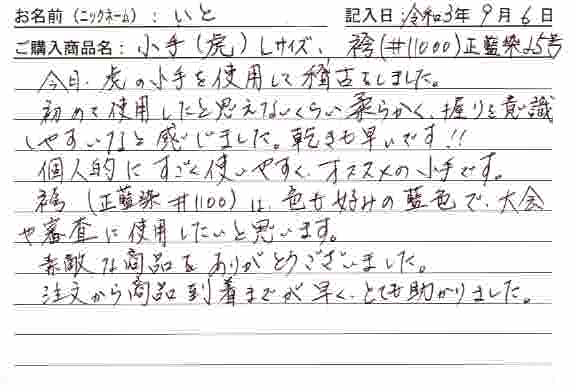 お名前(ニックネーム): いと 記入日: 令和3年 9月 6日
ご購入商品名: 小手(虎)Lサイズ、袴(#11000)正藍染25号
今日、虎の小手を使用して稽古をしました。
初めて使用したと思えないくらい柔らかく、握りを意識
しやすいなと感じました。乾きも早いです!!
個人的にすごく使いやすく、オススメの小手です。
袴(正藍染#1100)は、色も好みの藍色で、大会
や審査に使用したいと思います。
素敵な商品をありがとうございました。
注文から商品到着までが早く、とても助かりました。